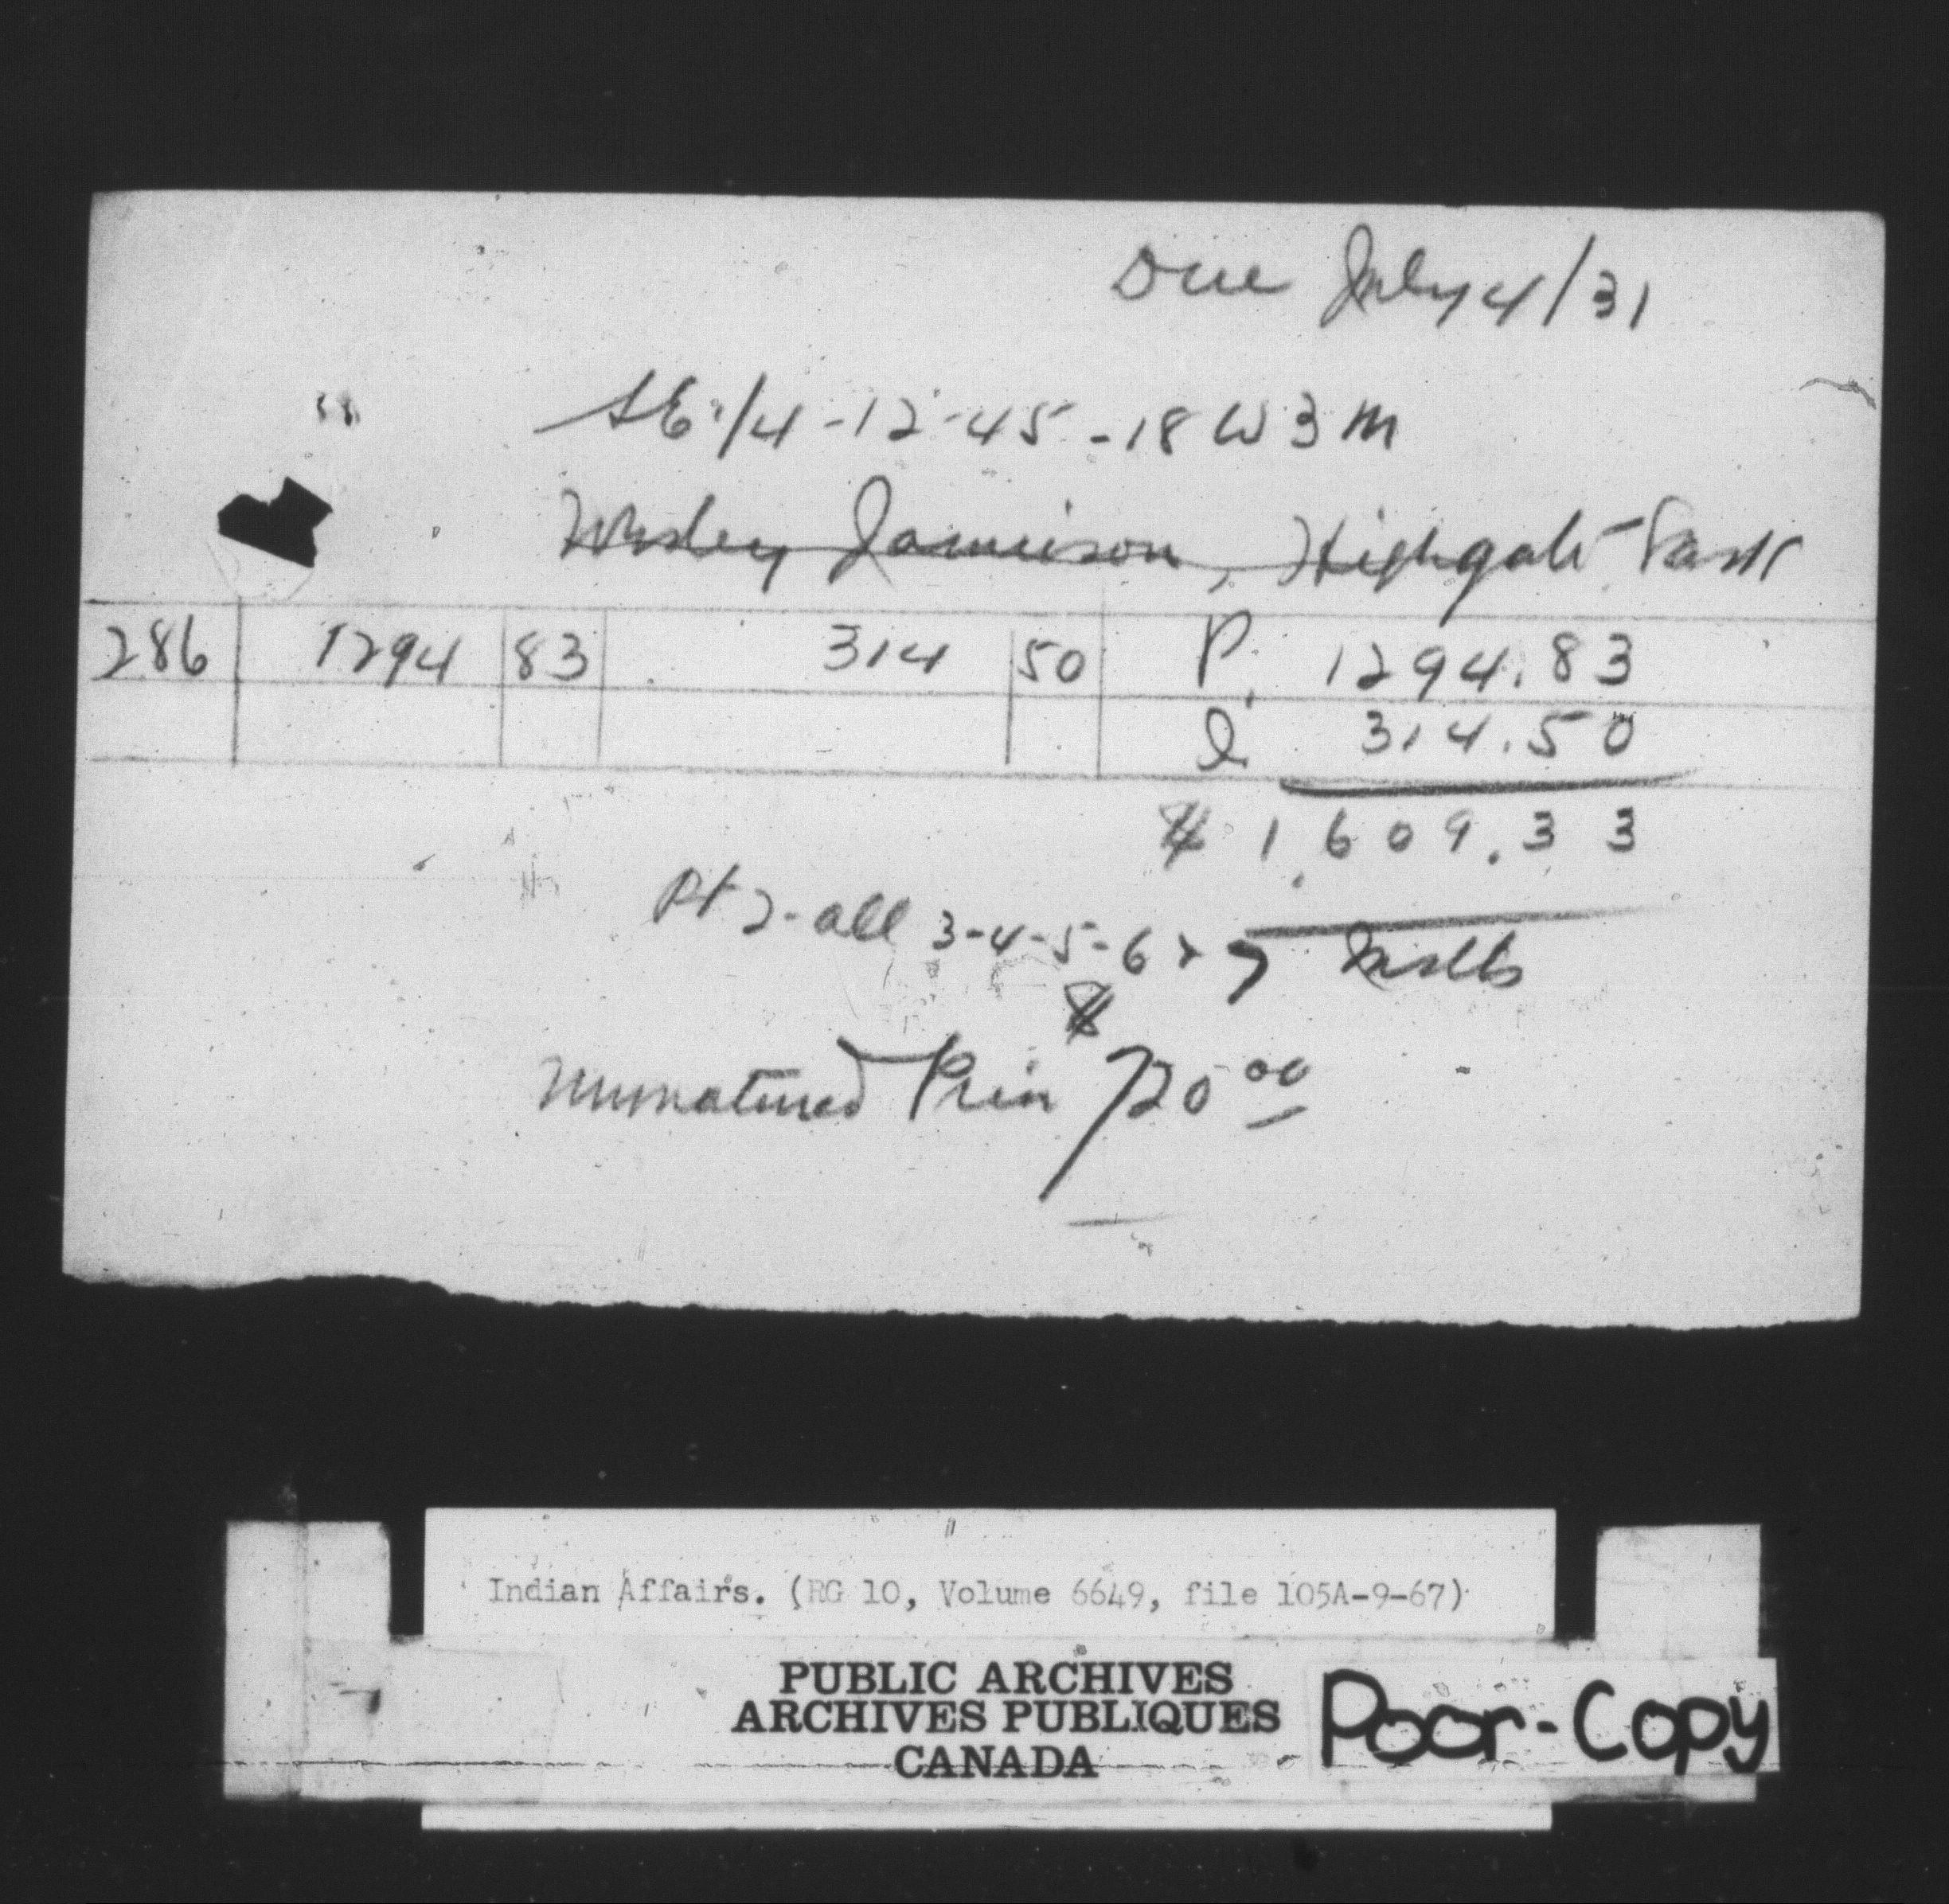 Due July 4/31
SE 1/4 - 12 - 45 - 18 W 3 M
Wesley Jamieson, Highgate Sask
286 1294 83 314 50 P. 1294.83
I. 314.50
$ 1,609.33
Pt 2 - all 3-4-5-6 & 7 Instlls
$
Unmatured Prin 720 00
Indian Affairs. (RG 10, Volume 6649, file 105A-9-67)
PUBLIC ARCHIVES
ARCHIVES PUBLIQUES
CANADA
Poor-Copy